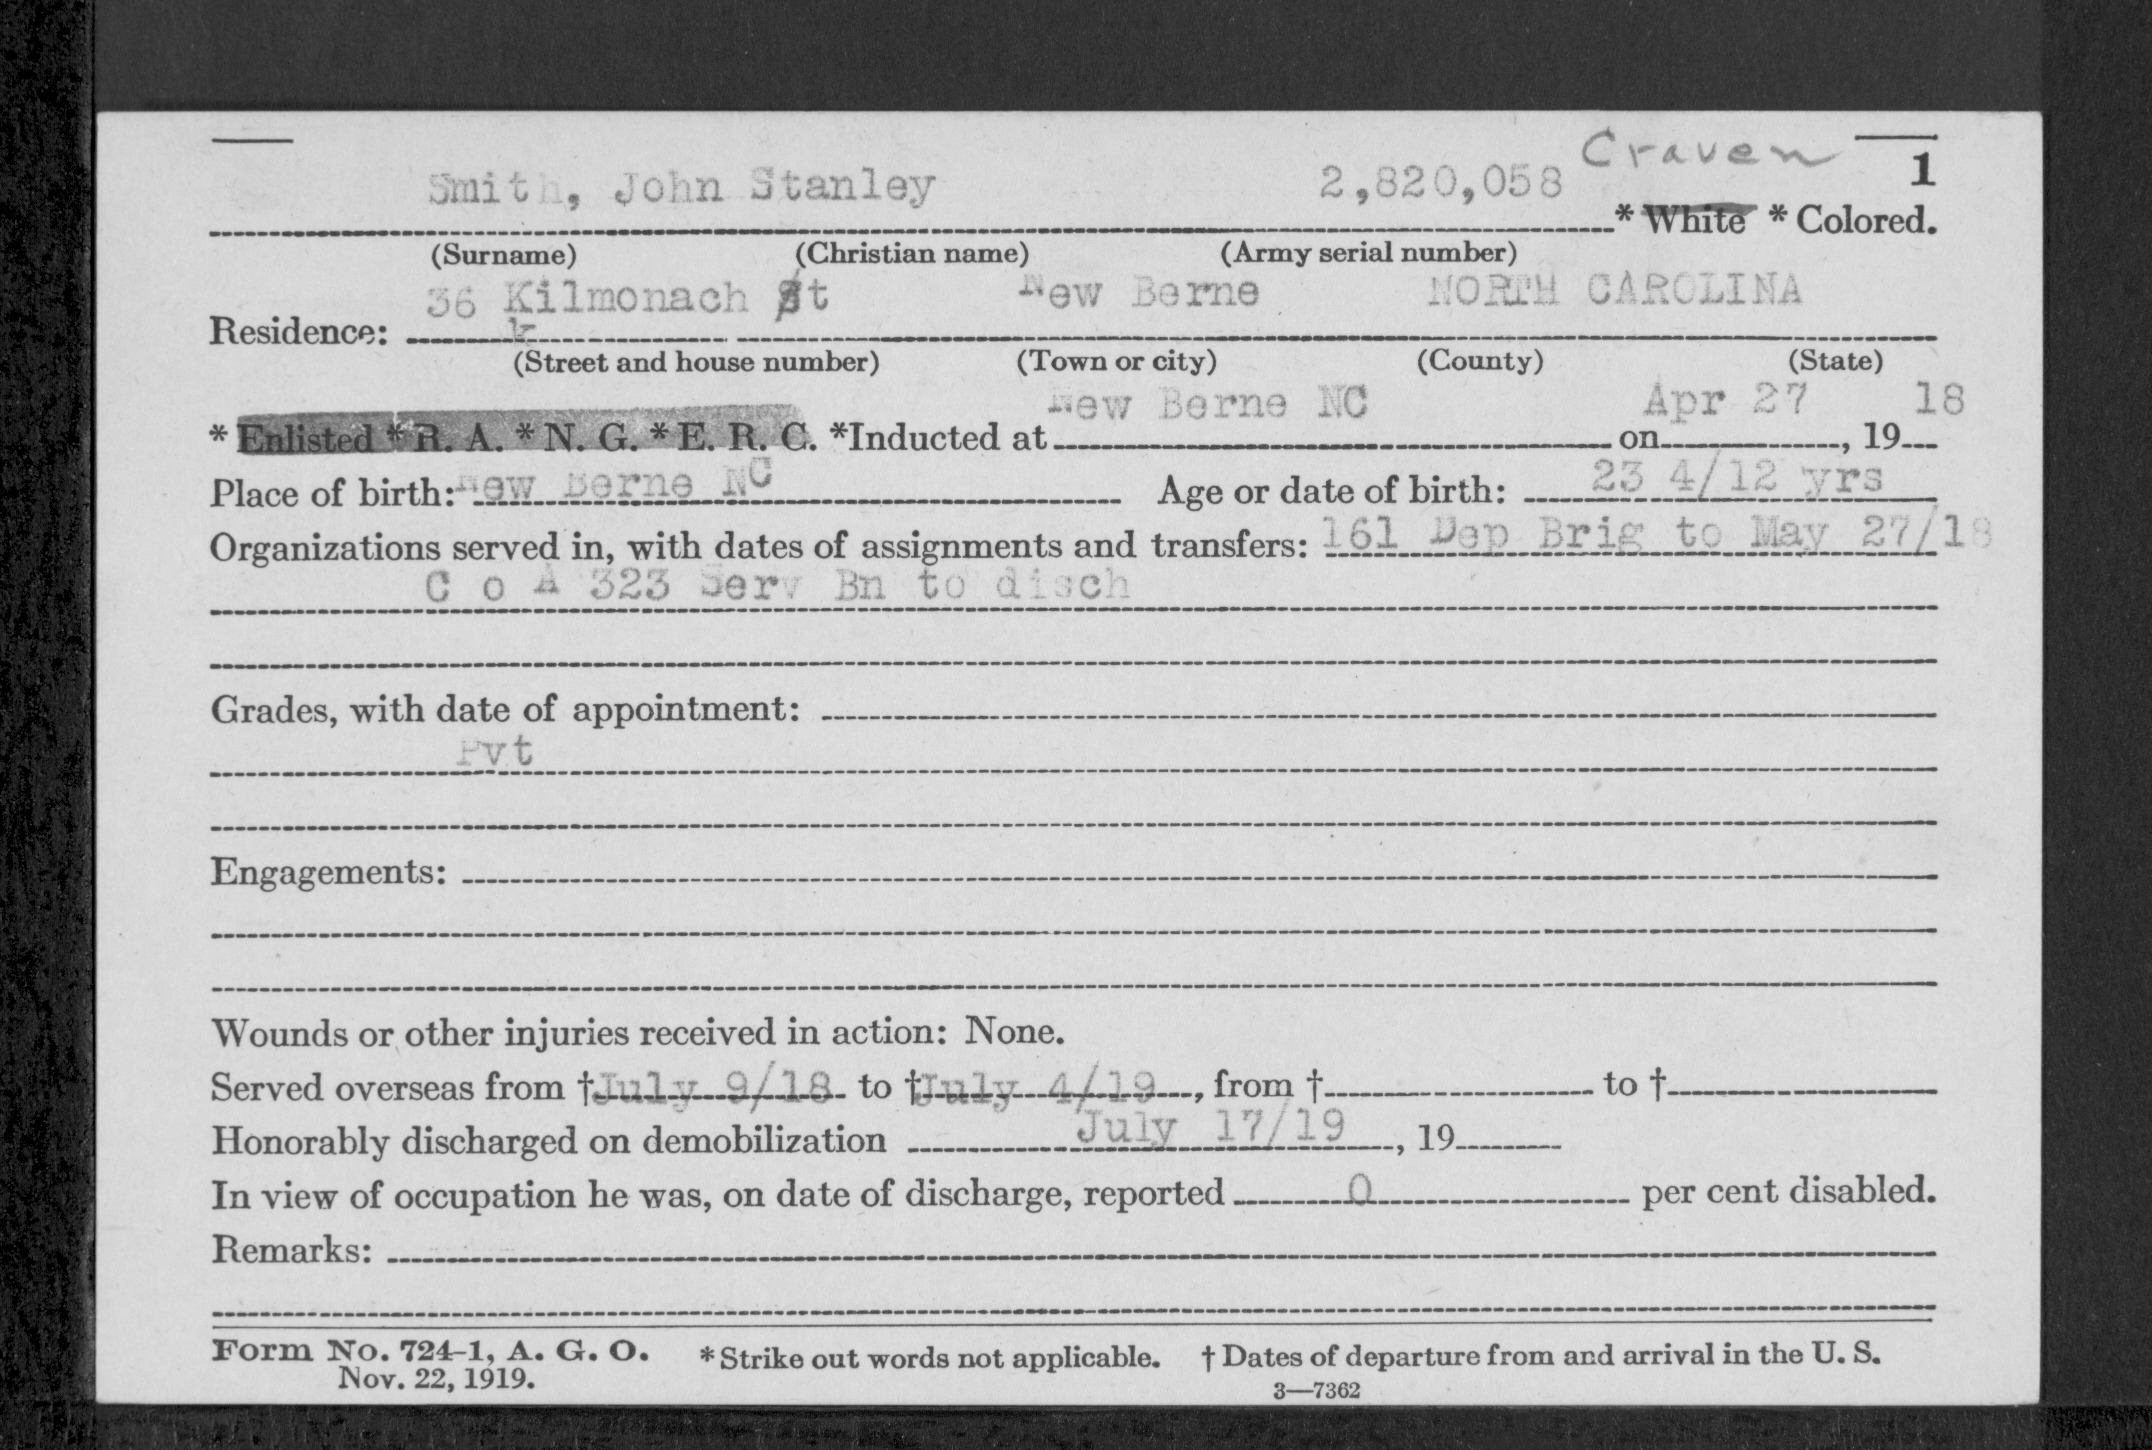 Craven
Smith, John Stanley 2,820,058 1
* White * Colored.
(Surname) (Christian name) (Army serial number)
36 Kilmonach St New Berne NORTH CAROLINA
Residence: k
(Street and house number) (Town or city) (County) (State)
New Berne NC Apr 27 18
* Enlisted * R. A. * N. G. * E. R. C. *Inducted at on , 19
Place of birth: New Berne NC Age or date of birth: 23 4/12 yrs
Organizations served in, with dates of assignments and transfers: 161 Dep Brig to May 27/18
C o A 323 Serv Bn to disch
Grades, with date of appointment:
Pvt
Engagements:
Wounds or other injuries received in action: None.
Served overseas from † July 9/18 to † July 4/19 , from † to †
Honorably discharged on demobilization July 17/19 , 19
In view of occupation he was, on date of discharge, reported 0 per cent disabled.
Remarks:
Form No. 724-1, A. G. O. * Strike out words not applicable. † Dates of departure from and arrival in the U. S.
Nov. 22, 1919. 3—7362